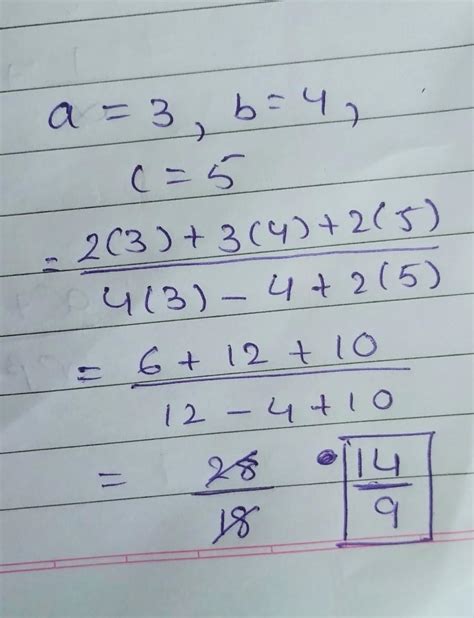 a = 3, b = 4,
c = 5
= 2(3) + 3(4) + 2(5)
4(3) - 4 + 2(5)
= 6 + 12 + 10
12 - 4 + 10
= 28 14
18 9